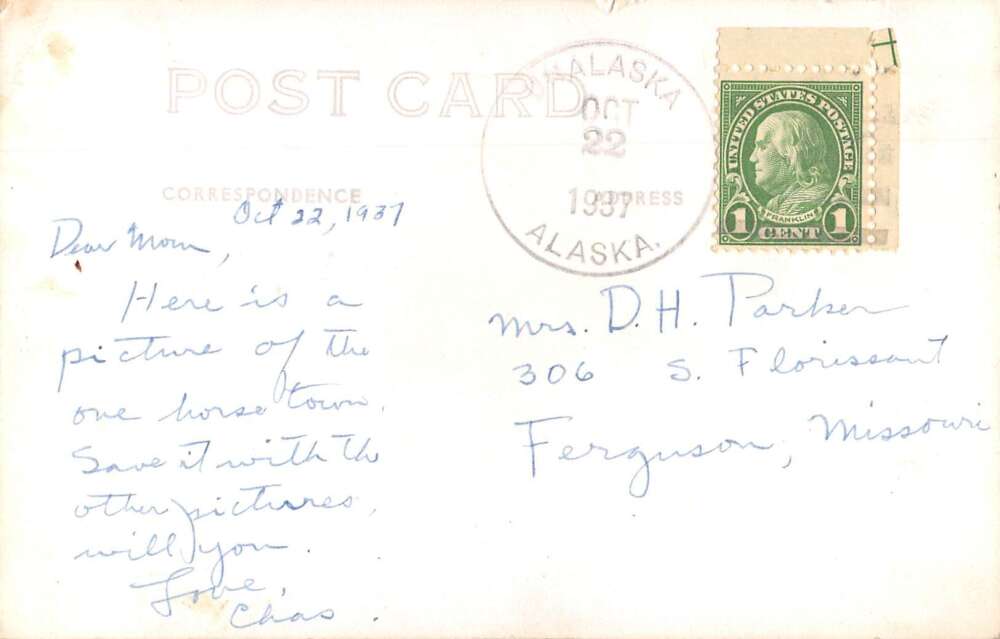 POST CARD
CORRESPONDENCE
ADDRESS
UNALASKA
OCT
22
1937
ALASKA.
UNITED STATES POSTAGE
FRANKLIN
1 CENT 1
Oct 22, 1937
Dear Mom,
Here is a
picture of the
one horse town.
Save it with the
other pictures,
will you.
Love,
Chas.
Mrs. D. H. Parker
306 S. Florissant
Ferguson, Missouri